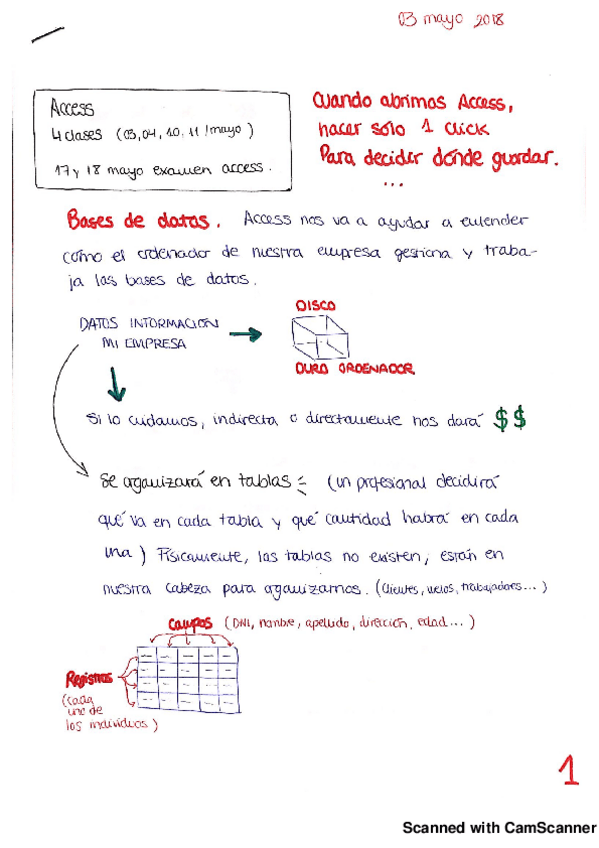 03 mayo 2018
Access
4 clases (03, 04, 10, 11 / mayo)
17 y 18 mayo examen access.
Cuando abrimos Access,
hacer sólo 1 click
Para decidir dónde guardar.
...
Bases de datos. Access nos va a ayudar a entender
como el ordenador de nuestra empresa gestiona y traba-
ja las bases de datos.
DATOS INFORMACIÓN
MI EMPRESA
DISCO
DURO ORDENADOR
Si lo cuidamos, indirecta o directamente nos dará $$
Se organizará en tablas (un profesional decidirá
qué va en cada tabla y qué cantidad habrá en cada
una) Físicamente, las tablas no existen, están en
nuestra cabeza para organizarnos. (Clientes, vuelos, trabajadores...)
Campos (DNI, nombre, apellido, dirección, edad...)
Registros
(cada
uno de
los individuos)
1
Scanned with CamScanner